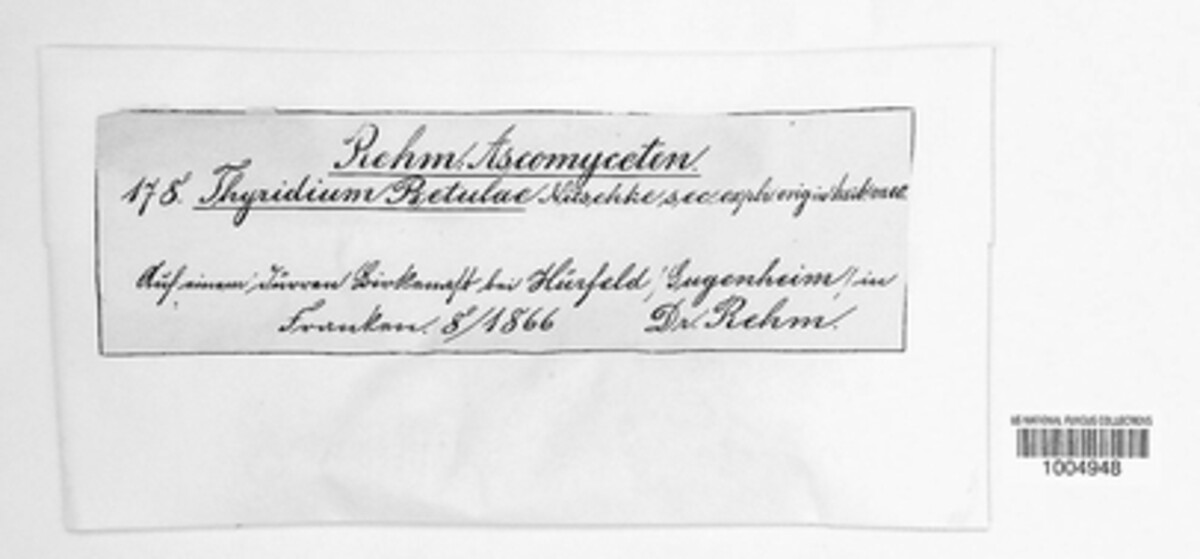 Rehm, Ascomyceten.
178. Thyridium Betulae Nitschke sec. expl. orig. in
Auf einem dürren Birkenast bei Hürfeld (Sugenheim) in
Franken. 8/1866 Dr. Rehm.
US NATIONAL FUNGUS COLLECTIONS
1004948